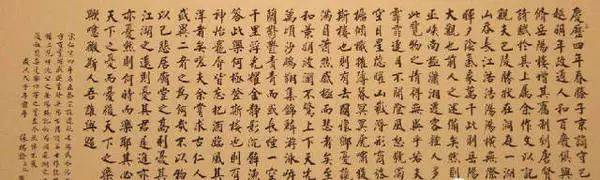 慶曆四年春滕子京謫守巴
越明年政通人和百廢俱興
脩岳陽樓增其舊制刻唐賢
詩賦於其上屬余作文以記
夫巴陵勝狀在洞庭一湖
山吞長江浩浩湯湯橫無際
暉夕陰氣象萬千此則岳陽
大觀也前人之述備矣然則
巫峽南極瀟湘遷客騷人多
此覽物之情得無異乎若夫
霏霏連月不開陰風怒號濁
空日星隱曜山嶽潛形商旅
檣傾楫摧薄暮冥冥虎嘯
斯樓也則有去國懷鄉憂讒
滿目蕭然感極而悲者矣至
和景明波瀾不驚上下天光
萬頃沙鷗翔集錦鱗游泳岸
蘭郁郁青青而或長煙一空
千里浮光耀金靜影沉璧漁
答此樂何極登斯樓也則有
神怡寵辱皆忘把酒臨風
洋者矣嗟夫余嘗求古仁人
或異二者之為何哉不以物
以己悲居廟堂之高則憂其
江湖之遠則憂其君是進亦
亦憂然則何時而樂耶其必
天下之憂而憂後天下之樂
歟噫微斯人吾誰與歸